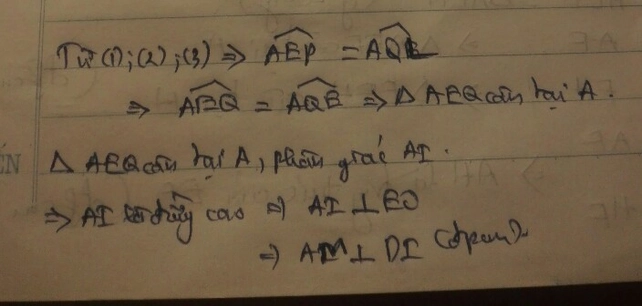 Từ (1); (2); (3) ⇒ AEP = AQE
⇒ AEQ = AQE ⇒ Δ AEQ cân tại A.
Δ AEQ cân tại A, phân giác AI.
⇒ AI là đường cao ⇒ AI ⊥ EQ
⇒ AM ⊥ DI (đpcm).